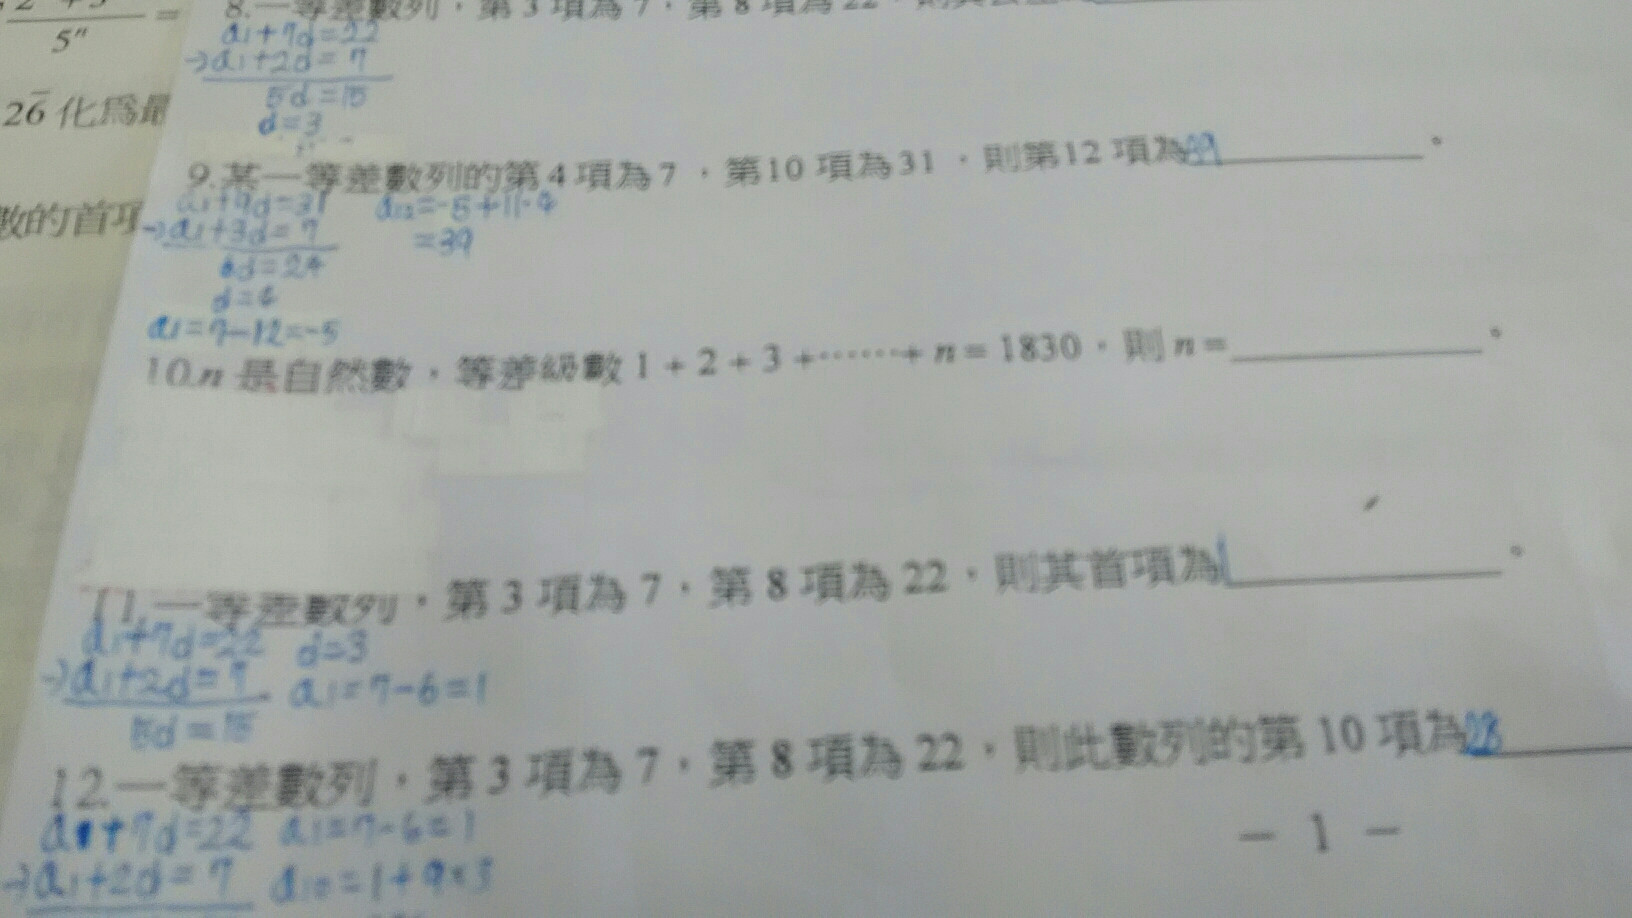 5ⁿ
8.一等差數列，第 3 項為 7，第 8 項為 22，
a₁+7d=22
→a₁+2d=7
5d=15
d=3
26̅ 化為最
9.某一等差數列的第 4 項為 7，第10 項為 31，則第12 項為39。
a₁+9d=31 a₁₂=-5+11·4
→a₁+3d=7 =39
6d=24
d=4
a₁=7-12=-5
數的首項
10.n 是自然數，等差級數 1 + 2 + 3 +⋯⋯+ n = 1830，則 n =____。
11.一等差數列，第 3 項為 7，第 8 項為 22，則其首項為1。
a₁+7d=22 d=3
→a₁+2d=7 a₁=7-6=1
5d=15
12.一等差數列，第 3 項為 7，第 8 項為 22，則此數列的第 10 項為28
a₁+7d=22 a₁=7-6=1
→a₁+2d=7 a₁₀=1+9×3
− 1 −